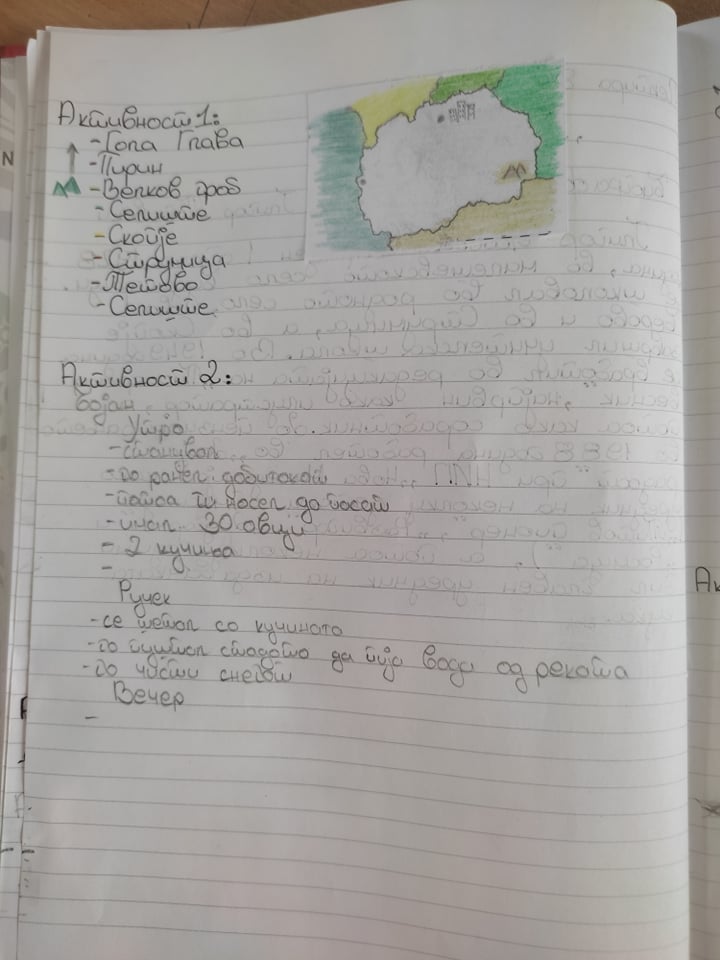 Активност 1:
- Гола Глава
- Пирин
- Велков гроб
- Селиште
- Скопје
- Струмица
- Тетово
- Селиште
Активност 2:
Бојан
Утро
- станувал
- го ранел добитокот
- ги носел до
- имал 30 овци
- 2 кучиња
-
Ручек
- се шетал со кучињата
- го пуштал стадото да пија вода од реката
- го чисти снегот
Вечер
-
Ак